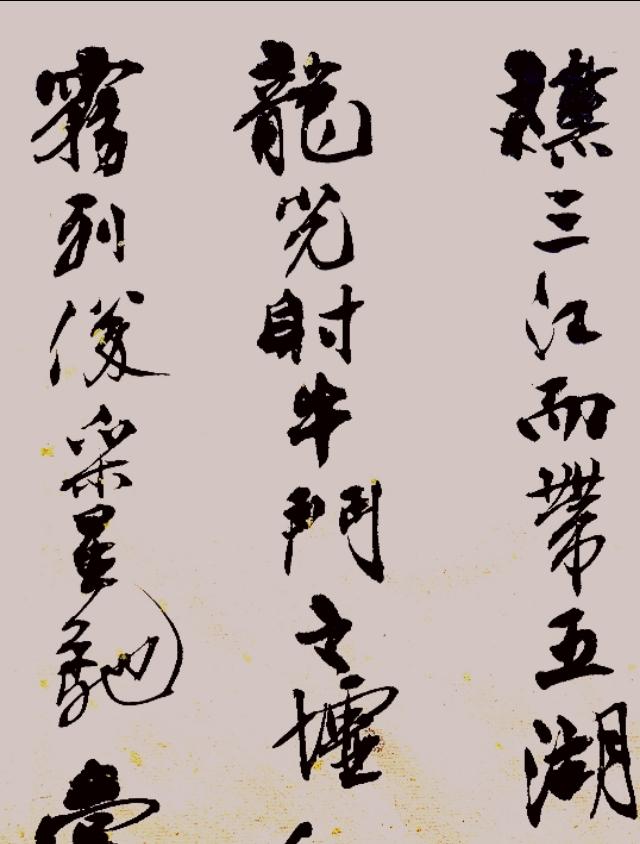 襟三江而帶五湖
龍光射牛鬥之墟
霧列俊采星馳